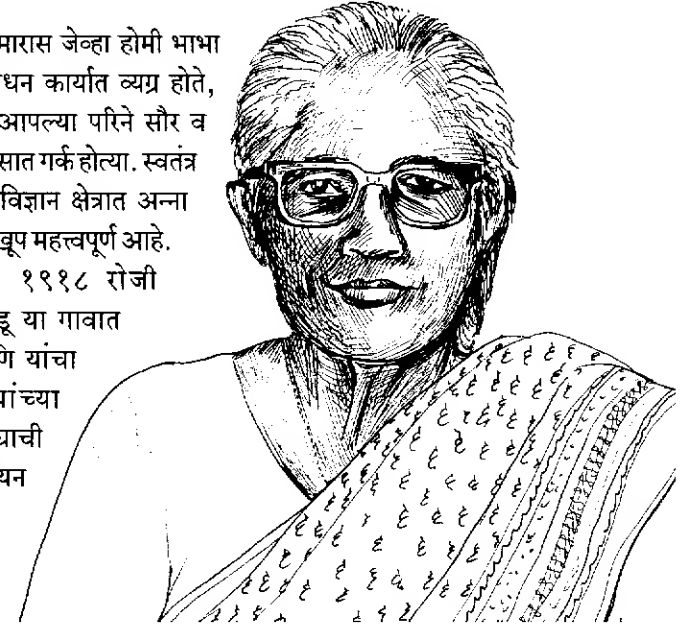 मारास जेव्हा होमी भाभा
धन कार्यात व्यग्र होते,
आपल्या परिने सौर व
सात गर्क होत्या. स्वतंत्र
विज्ञान क्षेत्रात अन्ना
खूप महत्त्वपूर्ण आहे.
१९१८ रोजी
डू या गावात
णि यांचा
यांच्या
याची
यन